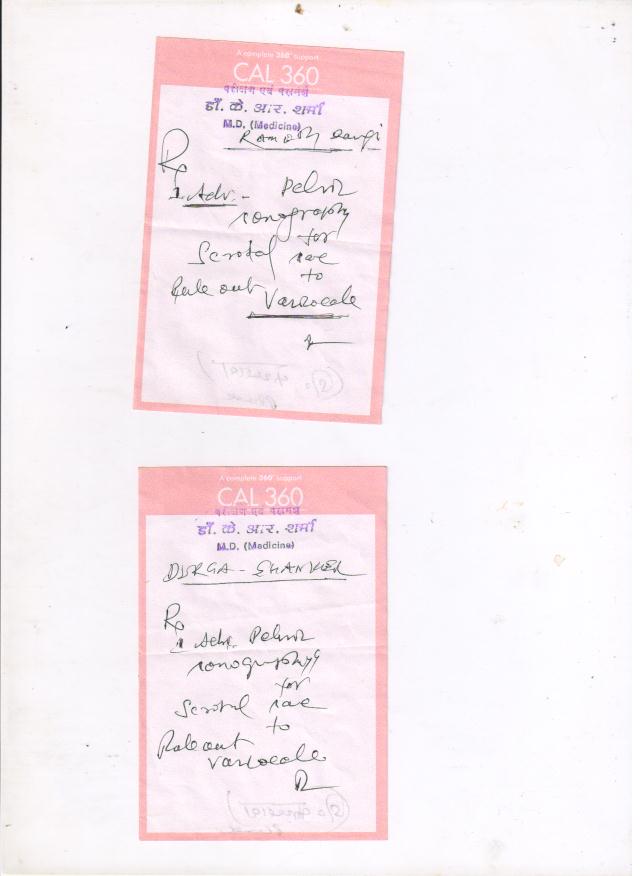 A complete 360° support
CAL 360
परीक्षण एवं परामर्श
डॉ. के. आर. शर्मा
M.D. (Medicine)
Ramesh
Rp
1 Adv. - Pelvic
sonography
for
Scrotal sac
to
Rule out Varicocele
A complete 360° support
CAL 360
परीक्षण एवं परामर्श
डॉ. के. आर. शर्मा
M.D. (Medicine)
DURGA - SHANKER
Rp
1 Adv. Pelvic
sonography
for
Scrotal sac
to
Rule out
varicocele